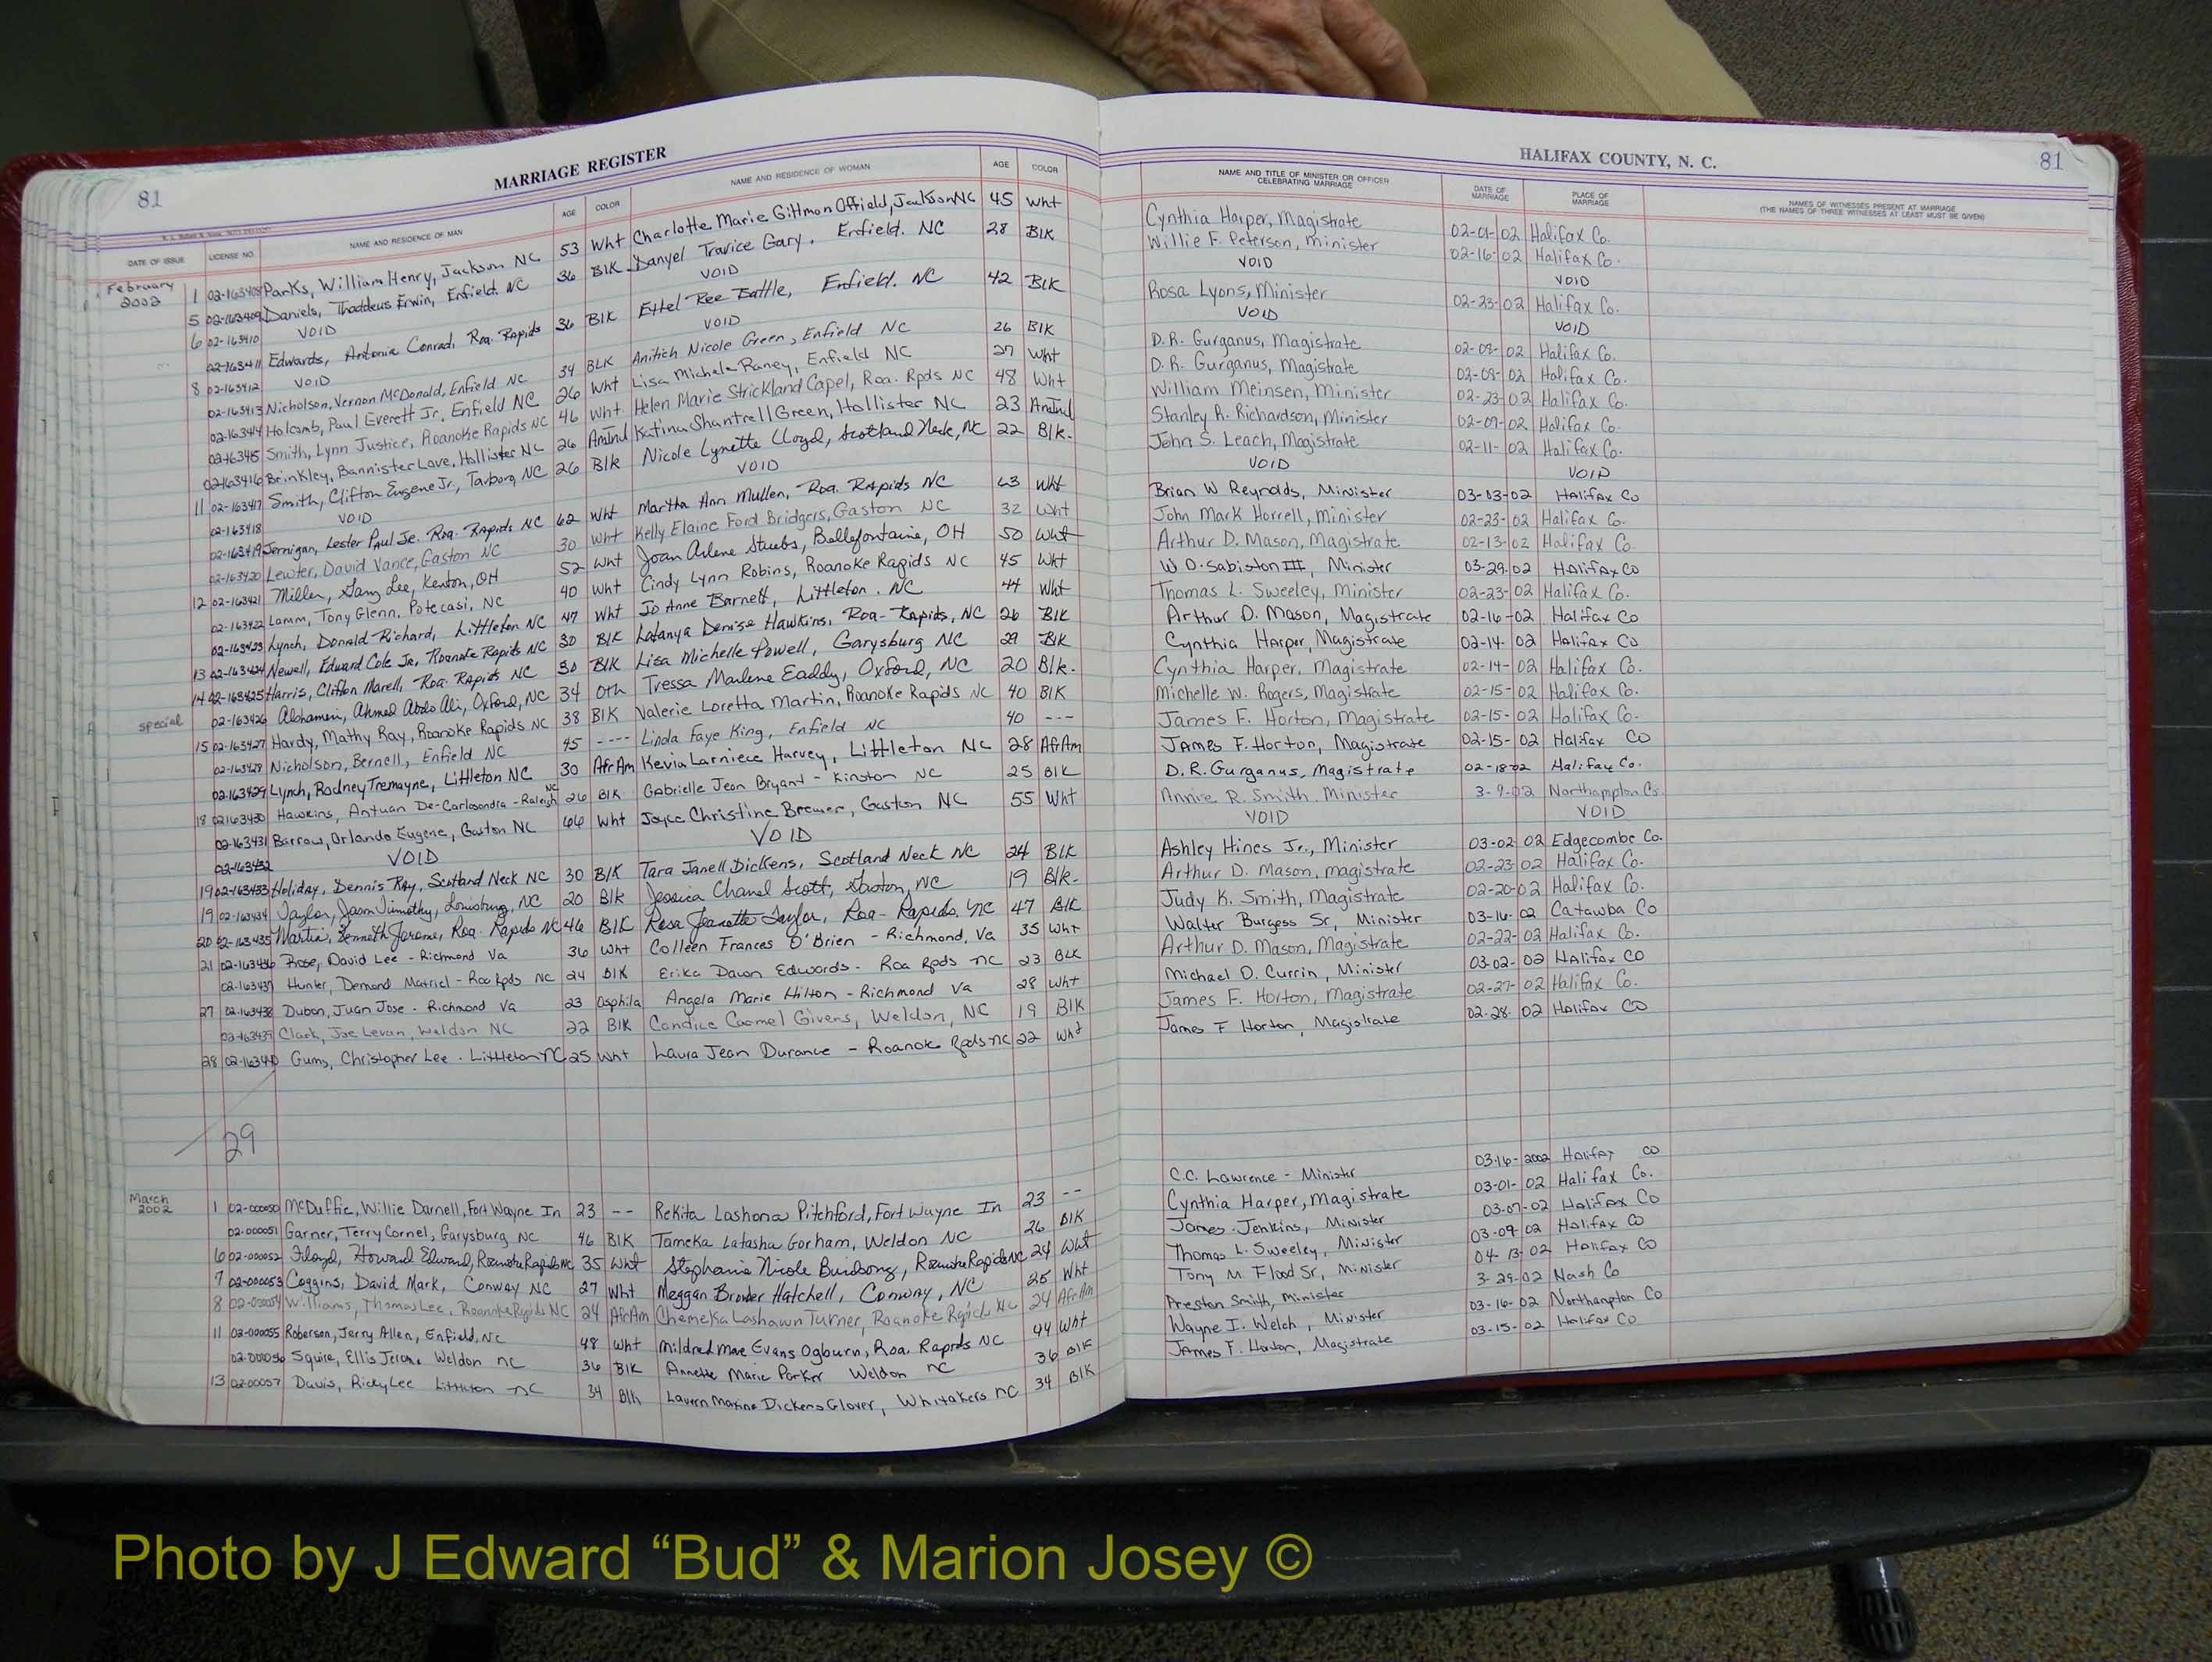 81
MARRIAGE REGISTER
DATE OF ISSUE LICENSE NO. NAME AND RESIDENCE OF MAN AGE COLOR NAME AND RESIDENCE OF WOMAN AGE COLOR
February 2002 1 02-163408 Parks, William Henry, Jackson NC 53 Wht Charlotte Marie Gittmon Offield, Jackson NC 45 Wht
5 02-163409 Daniels, Thaddeus Erwin, Enfield. NC 36 Blk Danyel Travice Gary. Enfield. NC 28 Blk
6 02-163410 VOID VOID
02-163411 Edwards, Antonia Conrad. Roa. Rapids 36 Blk Ethel Ree Battle, Enfield. NC 42 Blk
8 02-163412 VOID VOID
02-163413 Nicholson, Vernon McDonald, Enfield NC 34 BLK Anitich Nicole Green, Enfield NC 26 Blk
02-163414 Holcomb, Paul Everett Jr, Enfield NC 26 Wht Lisa Michele Raney, Enfield NC 27 Wht
02-163415 Smith, Lynn Justice, Roanoke Rapids NC 46 Wht Helen Marie Strickland Capel, Roa. Rpds NC 48 Wht
02-163416 Brinkley, Bannister Love, Hollister NC 26 AmInd Katina Shantrell Green, Hollister NC 23 AmInd
11 02-163417 Smith, Clifton Eugene Jr, Tarboro, NC 26 Blk Nicole Lynette Lloyd, Scotland Neck, NC 22 Blk.
02-163418 VOID VOID
02-163419 Jernigan, Lester Paul Jr. Roa. Rapids NC 62 Wht Martha Ann Mullen, Roa. Rapids NC 63 Wht
02-163420 Lewter, David Vance, Gaston NC 30 Wht Kelly Elaine Ford Bridgers, Gaston NC 32 Wht
12 02-163421 Miller, Gary Lee, Kenton, OH 52 Wht Joan Arlene Stubbs, Bellefontaine, OH 50 Wht
02-163422 Lamm, Tony Glenn, Potecasi, NC 40 Wht Cindy Lynn Robins, Roanoke Rapids NC 45 Wht
02-163423 Lynch, Donald Richard, Littleton NC 47 Wht Jo Anne Barnett, Littleton. NC 44 Wht
13 02-163424 Newell, Edward Cole Jr, Roanoke Rapids NC 30 Blk Latanya Denise Hawkins, Roa- Rapids, NC 26 Blk
14 02-163425 Harris, Clifton Marell, Roa. Rapids NC 30 Blk Lisa Michelle Powell, Garysburg NC 29 Blk
special 02-163426 Alohameri, Ahmed Abdo Ali, Oxford, NC 34 Oth Tressa Marlene Eaddy, Oxford, NC 20 Blk.
15 02-163427 Hardy, Mathy Ray, Roanoke Rapids NC 38 Blk Valerie Loretta Martin, Roanoke Rapids NC 40 Blk
02-163428 Nicholson, Bernell, Enfield NC 45 ---- Linda Faye King, Enfield NC 40 ---
02-163429 Lynch, Rodney Tremayne, Littleton NC 30 AfrAm Kevia Larniece Harvey, Littleton NC 28 AfrAm
18 02163430 Hawkins, Antuan De-Carlosondra - Raleigh NC 26 Blk Gabrielle Jean Bryant - Kinston NC 25 Blk
02-163431 Barrow, Orlando Eugene, Gaston NC 66 Wht Joyce Christine Brewer, Gaston NC 55 Wht
02-163432 VOID VOID
19 02-163433 Holiday, Dennis Ray, Scotland Neck NC 30 Blk Tara Janell Dickens, Scotland Neck NC 24 Blk
19 02-163434 Taylor, Jason Timothy, Louisburg, NC 20 Blk Jessica Chanel Scott, Gaston, NC 19 Blk-
20 02-163435 Martin, Kenneth Jerome, Roa. Rapids NC 46 Blk Rosa Jeanette Taylor, Roa- Rapids. NC 47 Blk
21 02-163436 Rose, David Lee - Richmond Va 36 Wht Colleen Frances O'Brien - Richmond, Va 35 Wht
02-163437 Hunter, Demond Matricl - Roa Rpds NC 24 Blk Erika Dawn Edwards - Roa Rpds NC 23 Blk
27 02-163438 Dubon, Juan Jose - Richmond Va 23 Angela Marie Hilton - Richmond Va 28 Wht
02-163439 Clark, Joe Levan, Weldon NC 22 Blk Candice Carmel Givens, Weldon, NC 19 Blk
28 02-163440 Gums, Christopher Lee. Littleton NC 25 Wht Laura Jean Durance - Roanoke Rpds NC 22 Wht
29
March 2002 1 02-000050 McDuffie, Willie Darnell, Fort Wayne In 23 -- Rekita Lashona Pitchford, Fort Wayne In 23 --
02-000051 Garner, Terry Cornel, Garysburg NC 46 Blk Tameka Latasha Gorham, Weldon NC 26 Blk
6 02-000052 Floyd, Howard Edward, Roanoke Rapids NC 35 Wht Stephanie Nicole Burdsong, Roanoke Rapids NC 24 Wht
7 02-000053 Coggins, David Mark, Conway NC 27 Wht Meggan Browder Hatchell, Conway, NC 25 Wht
8 02-000054 Williams, Thomas Lee, Roanoke Rapids NC 24 AfrAm Chemeka Lashawn Turner, Roanoke Rapids NC 24 AfrAm
11 02-000055 Roberson, Jerry Allen, Enfield, NC 48 Wht Mildred Mae Evans Ogburn, Roa. Rapids NC 44 Wht
02-000056 Squire, Ellis Jerome Weldon NC 36 Blk Annette Marie Parker Weldon NC 36 Blk
13 02-00057 Davis, Ricky Lee Littleton NC 34 Blk Lavern Maxine Dickens Glover, Whitakers NC 34 Blk
HALIFAX COUNTY, N. C.
81
NAME AND TITLE OF MINISTER OR OFFICER CELEBRATING MARRIAGE DATE OF MARRIAGE PLACE OF MARRIAGE NAMES OF WITNESSES PRESENT AT MARRIAGE (THE NAMES OF THREE WITNESSES AT LEAST MUST BE GIVEN)
Cynthia Harper, Magistrate 02-01-02 Halifax Co.
Willie F. Peterson, Minister 02-16-02 Halifax Co.
VOID VOID
Rosa Lyons, Minister 02-23-02 Halifax Co.
VOID VOID
D.R. Gurganus, Magistrate 02-08-02 Halifax Co.
D.R. Gurganus, Magistrate 02-08-02 Halifax Co.
William Meinsen, Minister 02-23-02 Halifax Co.
Stanley R. Richardson, Minister 02-09-02 Halifax Co.
John S. Leach, Magistrate 02-11-02 Halifax Co.
VOID VOID
Brian W Reynolds, Minister 03-03-02 Halifax Co
John Mark Horrell, Minister 02-23-02 Halifax Co.
Arthur D. Mason, Magistrate 02-13-02 Halifax Co.
W O. Sabiston III, Minister 03-29-02 Halifax Co
Thomas L. Sweeley, Minister 02-23-02 Halifax Co.
Arthur D. Mason, Magistrate 02-16-02 Halifax Co
Cynthia Harper, Magistrate 02-14-02 Halifax Co
Cynthia Harper, Magistrate 02-14-02 Halifax Co.
Michelle W. Rogers, Magistrate 02-15-02 Halifax Co.
James F. Horton, Magistrate 02-15-02 Halifax Co.
James F. Horton, Magistrate 02-15-02 Halifax Co
D.R. Gurganus, Magistrate 02-18-02 Halifax Co.
Annie R. Smith Minister 3-9-02 Northampton Co.
VOID VOID
Ashley Hines Jr., Minister 03-02 02 Edgecombe Co.
Arthur D. Mason, magistrate 02-23 02 Halifax Co.
Judy K. Smith, Magistrate 02-20-02 Halifax Co.
Walter Burgess Sr, Minister 03-16-02 Catawba Co
Arthur D. Mason, Magistrate 02-22-02 Halifax Co.
Michael O. Currin, Minister 03-02-02 Halifax Co
James F. Horton, Magistrate 02-27-02 Halifax Co.
James F Horton, Magistrate 02-28-02 Halifax Co
C.C. Lawrence - Minister 03-16-2002 Halifax Co
Cynthia Harper, Magistrate 03-01-02 Halifax Co.
James Jenkins, Minister 03-07-02 Halifax Co
Thomas L. Sweeley, Minister 03-09-02 Halifax Co
Tony M Flood Sr, Minister 04-13-02 Halifax Co
Preston Smith, Minister 3-29-02 Nash Co
Wayne I. Welch, Minister 03-16-02 Northampton Co
James F. Horton, Magistrate 03-15-02 Halifax Co
Photo by J Edward “Bud” & Marion Josey ©